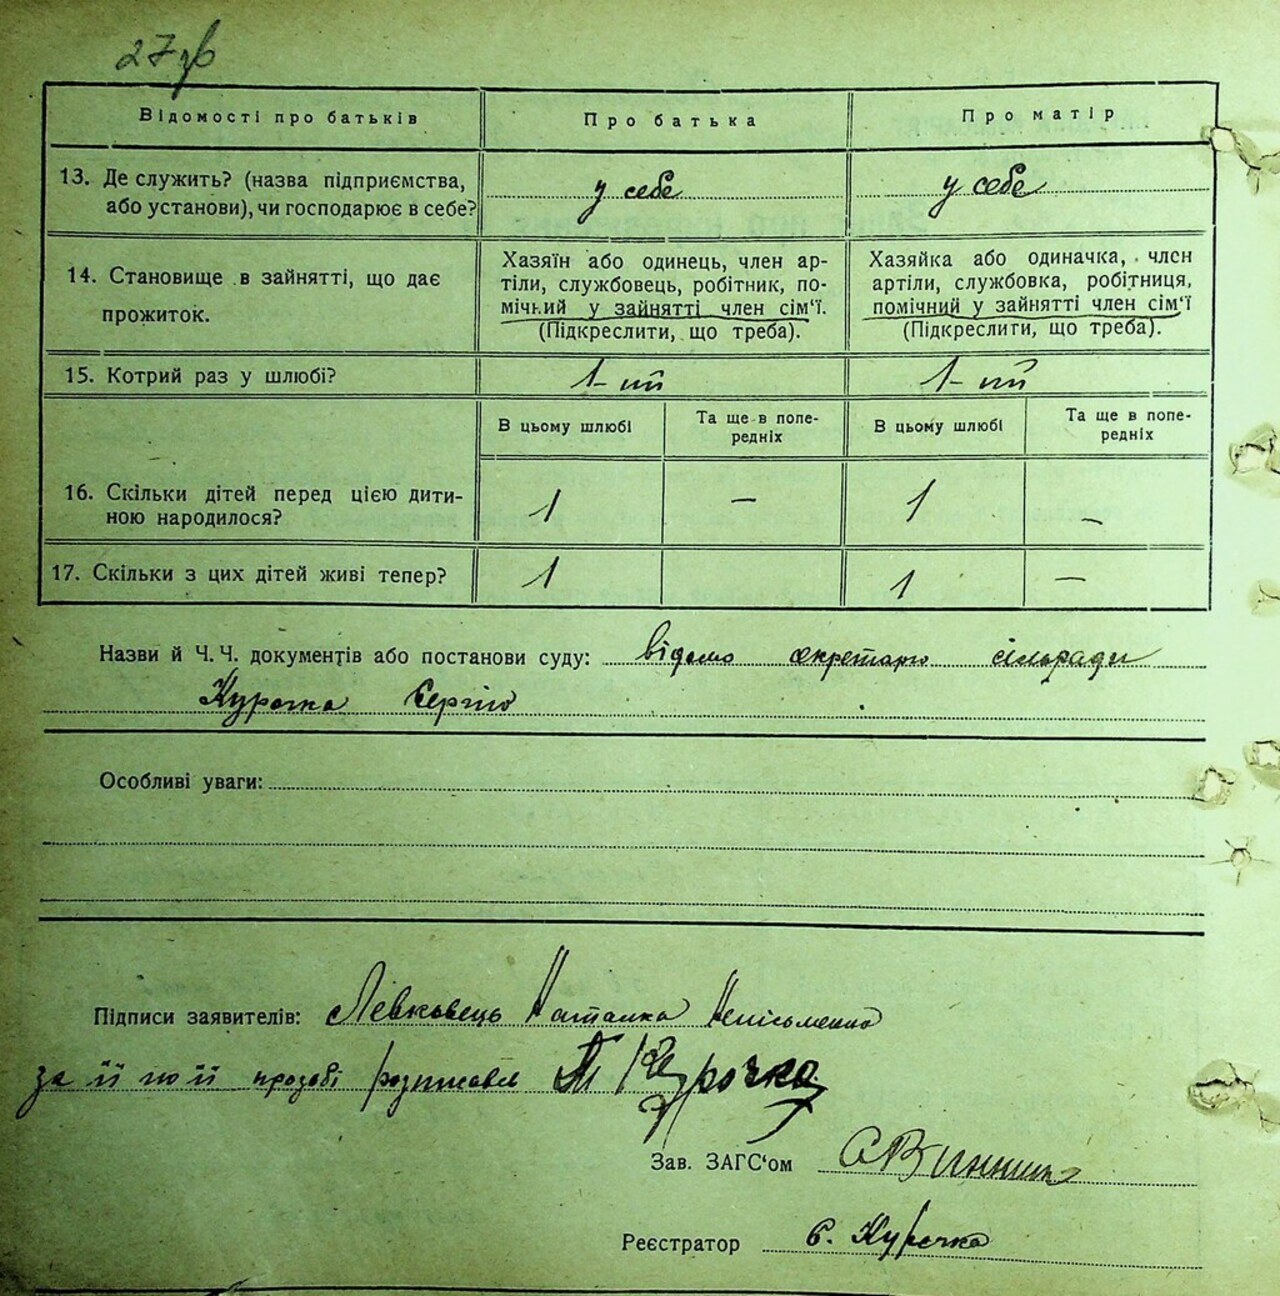 27 зв
Відомості про батьків
Про батька
Про матір
13. Де служить? (назва підприємства,
або установи), чи господарює в себе?
у себе
у себе
14. Становище в зайнятті, що дає
прожиток.
Хазяїн або одинець, член ар-
тіли, службовець, робітник, по-
мічний у зайнятті член сім‘ї.
(Підкреслити, що треба).
Хазяйка або одиначка, член
артіли, службовка, робітниця,
помічний у зайнятті член сім‘ї
(Підкреслити, що треба).
15. Котрий раз у шлюбі?
1-ий
1-ий
В цьому шлюбі
Та ще в попе-
редніх
В цьому шлюбі
Та ще в попе-
редніх
16. Скільки дітей перед цією дити-
ною народилося?
1
—
1
—
17. Скільки з цих дітей живі тепер?
1
1
—
Назви й Ч. Ч. документів або постанови суду: відомо секретарю сільради
Курочка Сергію
Особливі уваги:
Підписи заявителів: Левковець Наталка Неписьменна
за її по її прозьбі розписався Курочка
Зав. ЗАГС‘ом
Реєстратор С. Курочка